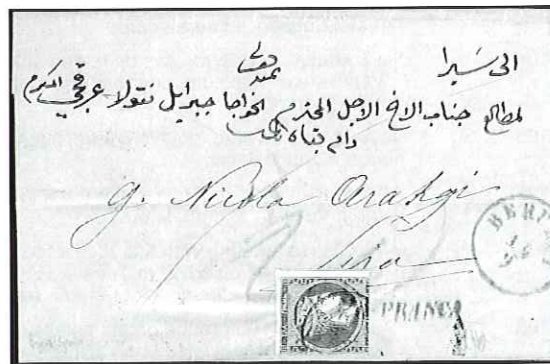 الى سيرا
لمطالع جناب الاخ الاجل المحترم الخواجا جبرايل نقولا عرقجي اكرم
دام بقاه
G. Nicola Arakgi
Sira
FRANCA
BER